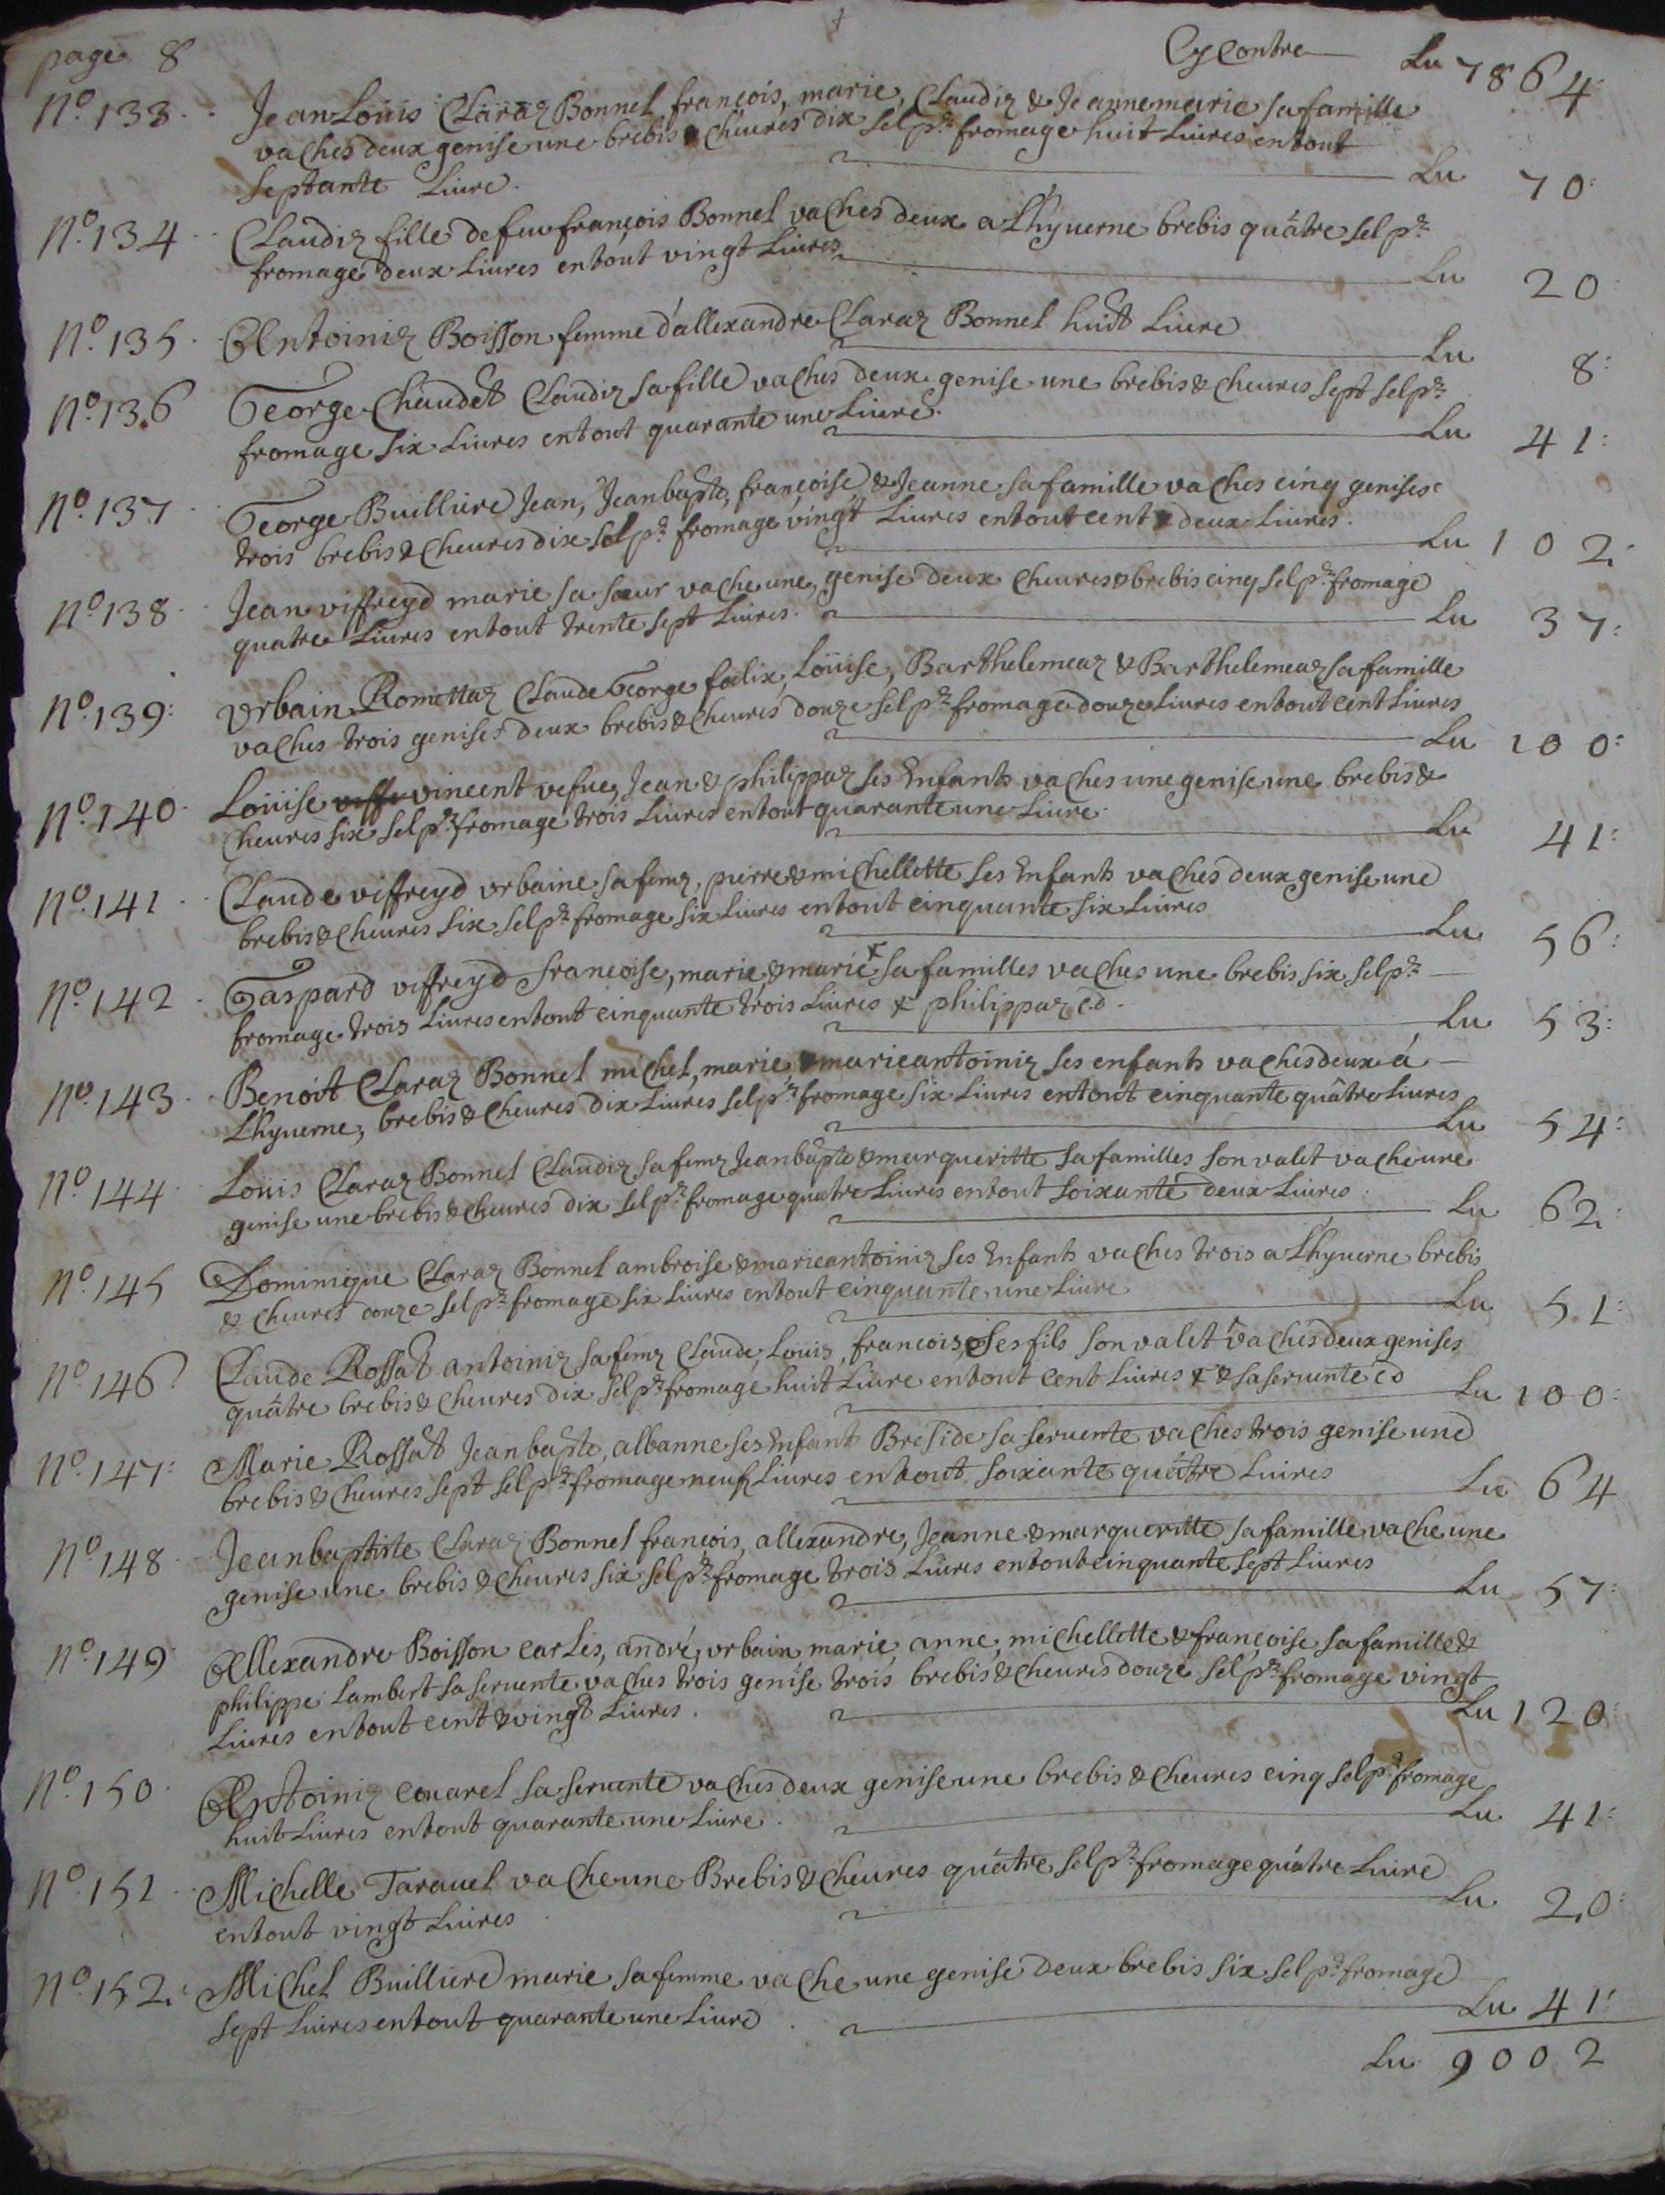 page 8 Cy Contre Lu 7864
N.º 133. Jean Loüis Claraz Bonnel françois, marie, Claudiz & Jeannemarie sa famille
vaches deux genise une brebis & cheures dix sel pr. fromage huit Liures entout
septante Liure. Lu 70
N.º 134 Claudiz fille de feu françois Bonnel vaches deux a Lhyuerne brebis quâtre sel pr.
fromage deux Liures entout vingt Liures Lu 20
N.º 135. Antoiniz Boisson femme d'allexandre Claraz Bonnel huit Liure Lu 8:
N.º 136 George Chaudet Claudiz sa fille vaches deux genise une brebis & cheures sept sel pr.
fromage six Liures entout quarante une Liure. Lu 41:
N.º 137 George Buillierd Jean, Jeanbapte, françoise & Jeanne sa famille vaches cinq genises
trois brebis & cheures dix sel pr. fromage vingt Liures entout cent & deux Liures. Lu 102
N.º 138 Jean viffreyd marie sa sœur vache une, genise deux cheures & brebis cinq sel pr. fromage
quatre Liures entout trente sept Liures. Lu 37:
N.º 139: Vrbain Romettaz Claude George fælix, Loüise, Barthelemeaz & Barthelemeaz sa famille
vaches trois genises deux brebis & cheures douze sel pr. fromage douze Liures entout cent Liures
Lu 100:
N.º 140 Loüise viffr vincent vefue, Jean & philippaz ses Enfants vaches une genise une brebis &
cheures six sel pr. fromage trois Liures entout quarante une Liure. Lu 41:
N.º 141 Claude viffreyd vrbaine sa femz, pierre & michellette ses Enfants vaches deux genise une
brebis & cheures six sel pr. fromage six Liures entout cinquante six Liures Lu 56:
N.º 142 Gaspard viffreyd francoise, marie, & marie x sa familles vaches une brebis six sel pr.
fromage trois Liures entout cinquante trois Liures x philippaz cd. Lu 53:
N.º 143 Benoit Claraz Bonnel michel, marie, & marieantoiniz ses enfants vaches deux á
Lhyuerne, brebis & cheures dix Liures sel pr. fromage six Liures entout cinquante quâtre Liures
Lu 54:
N.º 144 Loüis Claraz Bonnel Claudiz sa femz Jeanbapte & margueritte sa familles son valet vache une
genise une brebis & cheures dix sel pr. fromage quatre Liures entout soixante deux Liures. Lu 62:
N.º 145 Dominique Claraz Bonnel ambroise & marieantoiniz ses Enfants vaches trois a Lhyuerne brebis
& cheures douze sel pr. fromage six Liures entout cinquante une Liure Lu 51:
N.º 146 Claude Rossat antoiniz sa femz Claude, Loüis, francois, & ses fils son valet x vaches deux genises
quâtre brebis & cheures dix sel pr. fromage huit Liure entout cent Liures x & sa seruente cd Lu 100:
N.º 147: Marie Rossat Jeanbapte, albanne ses Enfant Breside sa seruente vaches trois genise une
brebis & cheures sept sel pr. fromage neuf Liures entout soixante quâtre Liures Lu 64
N.º 148 Jeanbaptiste Claraz Bonnel francois, allexandre, Jeanne & margueritte sa famille vache une
genise une brebis & cheures six sel pr. fromage trois Liures entout cinquante sept Liures Lu 57:
N.º 149 Allexandre Boisson carLes, andré, vrbain, marie, anne, michellette & françoise sa famille &
philippe Lambert sa seruente vaches trois genise trois brebis & cheures douze sel pr. fromage vingt
Liures entout cent & vingt Liures. Lu 120:
N.º 150 Antoiniz couarel sa seruente vaches deux genise une brebis & cheures cinq sel pr. fromage
huit Liures entout quarante une Liure. Lu 41:
N.º 151 Michelle Tarauel vache une Brebis & cheures quâtre sel pr. fromage quâtre Liure
entout vingt Liures Lu 20:
N.º 152: Michel Buillierd marie sa femme vache une genise deux brebis six sel pr. fromage
sept Liures entout quarante une Liure Lu 41:
Lu 9002